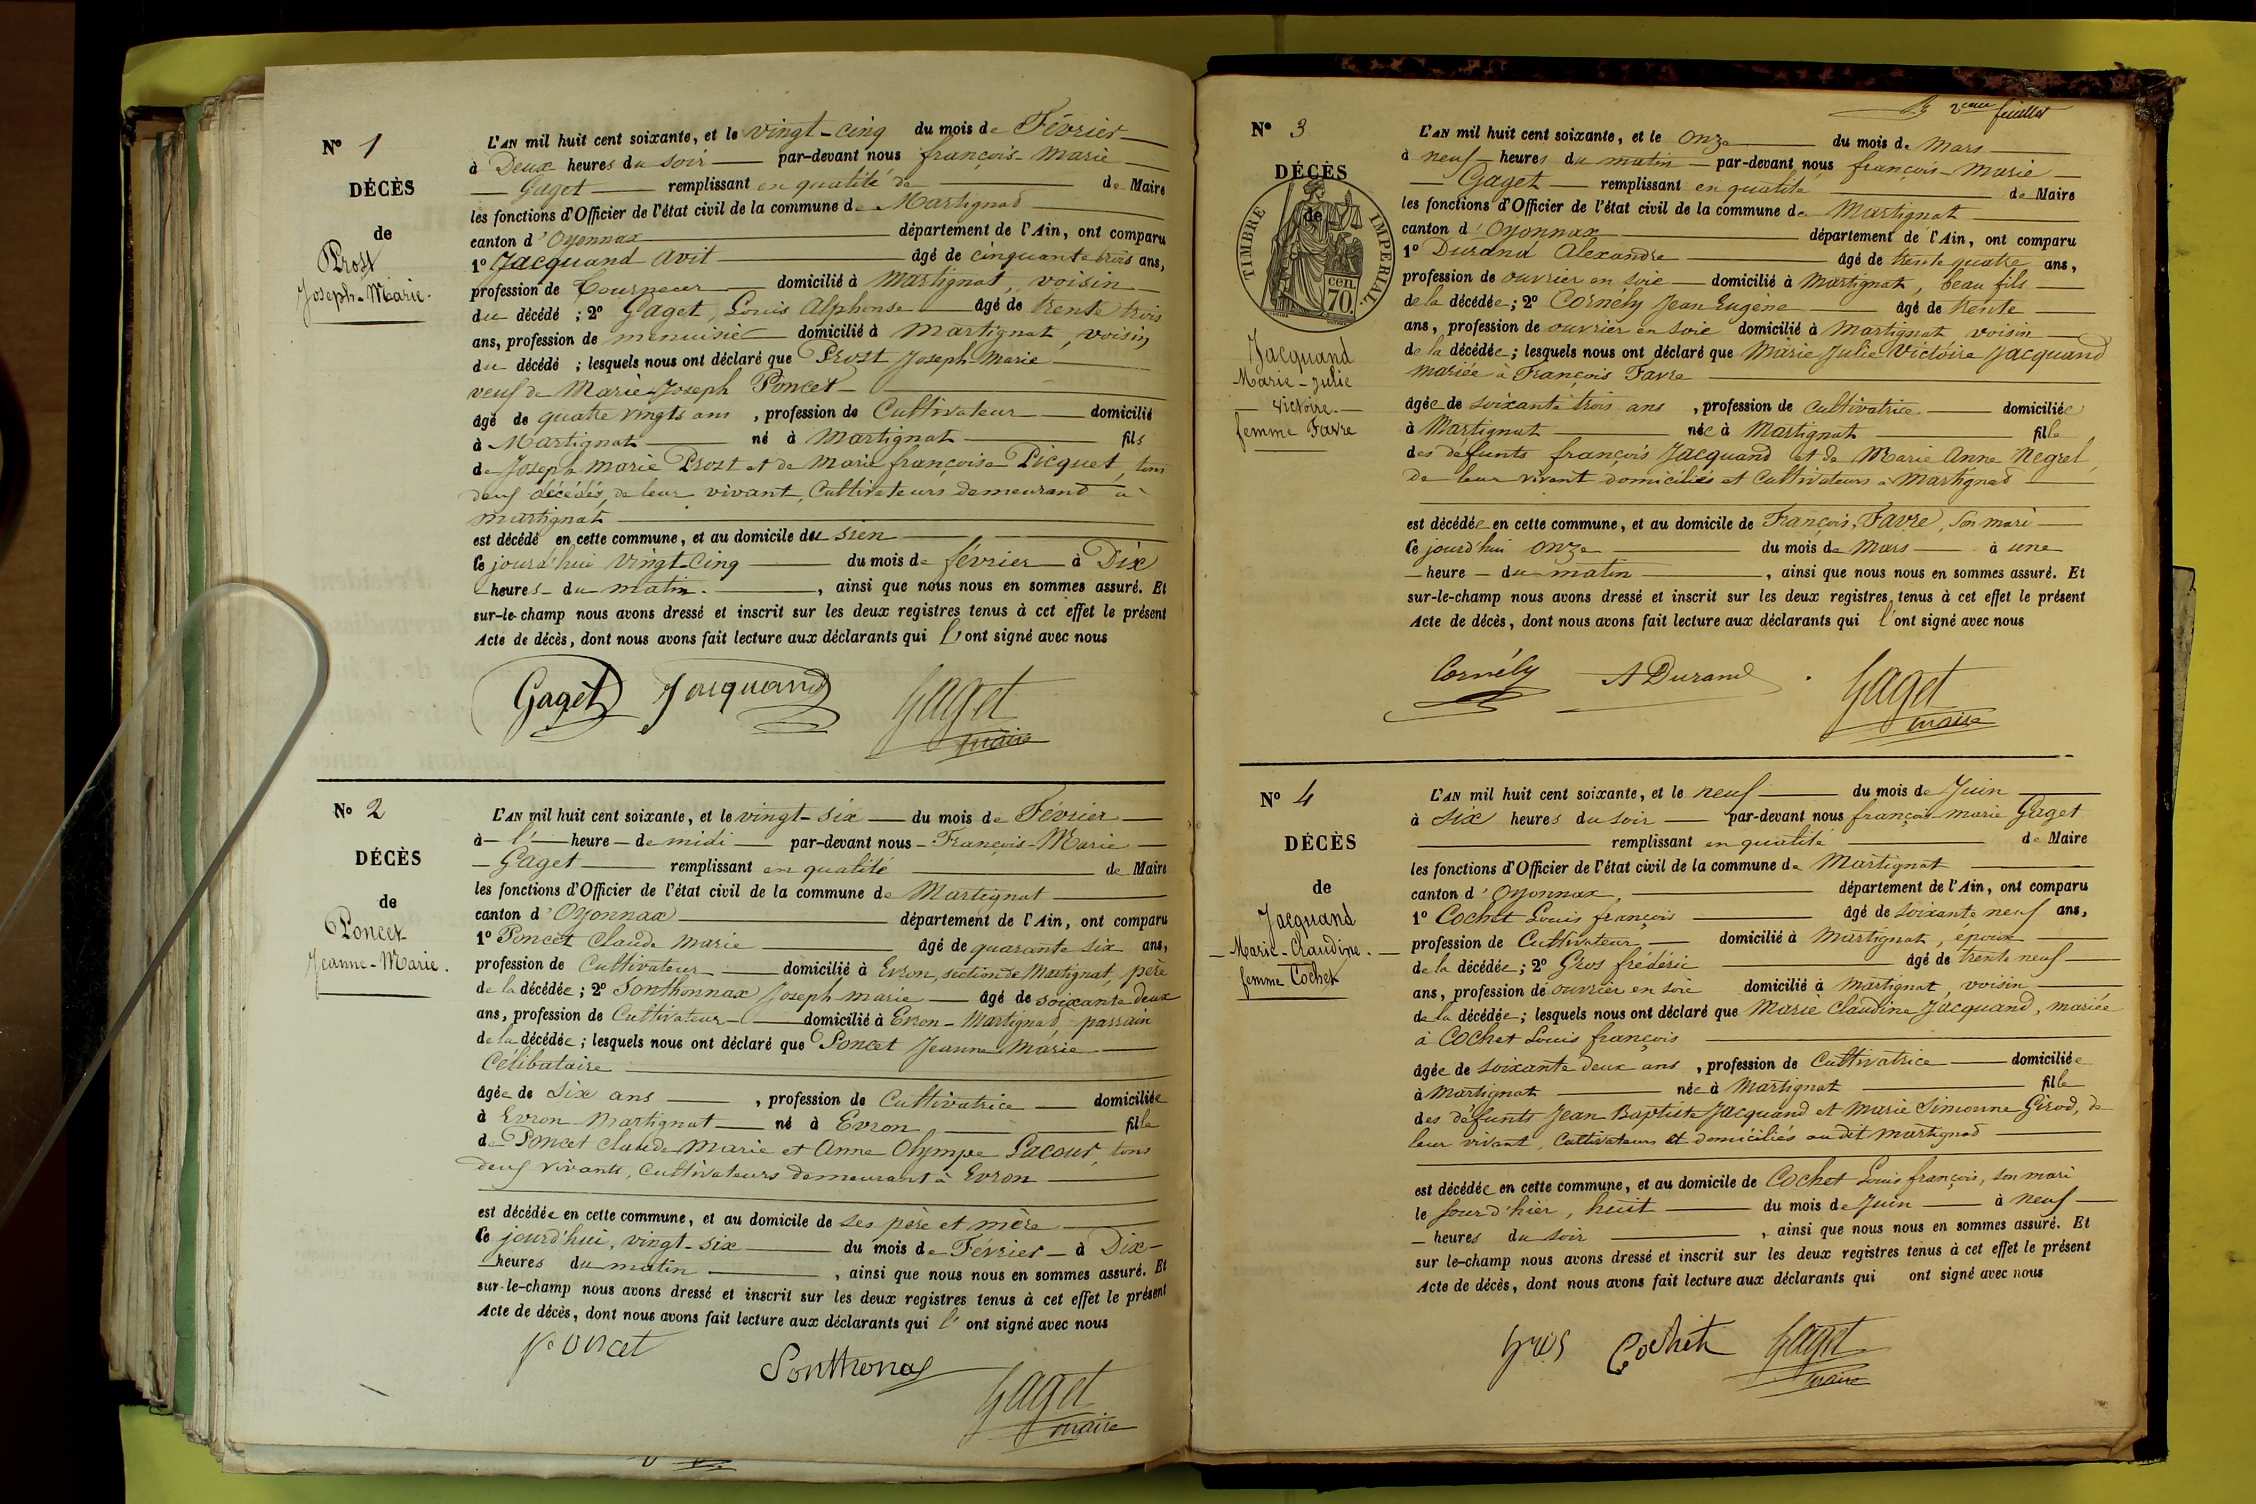 N° 1
DÉCÈS
de
Prost
Joseph-Marie.
L'AN mil huit cent soixante, et le vingt-cinq du mois de Février
à Deux heures du soir par-devant nous françois-Marie
Gaget remplissant en qualité de de Maire
les fonctions d'Officier de l'état civil de la commune de Martignat
canton d'Oyonnax département de l'Ain, ont comparu
1° Jacquand Avit âgé de cinquante trois ans,
profession de Tourneur domicilié à Martignat, voisin
du décédé ; 2° Gaget, Louis Alphonse âgé de trente trois
ans, profession de menuisier domicilié à Martignat, voisin
du décédé ; lesquels nous ont déclaré que Prost Joseph Marie
veuf de Marie-Joseph Poncet
âgé de quatre vingts ans , profession de Cultivateur domicilié
à Martignat né à Martignat fils
de Joseph Marie Prost et de Marie françoise Picquet, tous
deux décédés, de leur vivant, Cultivateurs demeurand à
Martignat
est décédé en cette commune, et au domicile du sien
Ce jourd'hui vingt-cinq du mois de février à Dix
heures du matin. , ainsi que nous nous en sommes assuré. Et
sur-le-champ nous avons dressé et inscrit sur les deux registres tenus à cet effet le présent
Acte de décès, dont nous avons fait lecture aux déclarants qui l'ont signé avec nous
Gaget Jacquand Gaget
maire
N° 2
DÉCÈS
de
Poncet
Jeanne-Marie.
L'AN mil huit cent soixante, et le vingt-six du mois de Février
à l' heure de midi par-devant nous François-Marie
Gaget remplissant en qualité de Maire
les fonctions d'Officier de l'état civil de la commune de Martignat
canton d'Oyonnax département de l'Ain, ont comparu
1° Poncet Claude Marie âgé de quarante six ans,
profession de Cultivateur domicilié à Evron, section de Martignat, père
de la décédée ; 2° Sonthonnax Joseph marie âgé de soixante deux
ans, profession de Cultivateur domicilié à Evron-Martignat, parrain
de la décédée ; lesquels nous ont déclaré que Poncet Jeanne Marie
Célibataire
âgée de six ans , profession de Cultivatrice domiciliée
à Evron Martignat né à Evron fille
de Poncet Claude Marie et Anne Olympe Lacour, tous
deux vivants, Cultivateurs demeurant à Evron
est décédée en cette commune, et au domicile de ses père et mère
Ce jourd'hui, vingt-six du mois de Février à Dix
heures du matin , ainsi que nous nous en sommes assuré. Et
sur-le-champ nous avons dressé et inscrit sur les deux registres tenus à cet effet le présent
Acte de décès, dont nous avons fait lecture aux déclarants qui l'ont signé avec nous
Poncet
Sonthonax
Gaget
maire
2eme feuillet
N° 3
DÉCÈS
de
TIMBRE IMPERIAL
70 cen.
Jacquand
Marie-Julie
Victoire
femme Favre
L'AN mil huit cent soixante, et le onze du mois de Mars
à neuf heures du matin par-devant nous françois-Marie
Gaget remplissant en qualité de Maire
les fonctions d'Officier de l'état civil de la commune de Martignat
canton d'Oyonnax département de l'Ain, ont comparu
1° Durand Alexandre âgé de trente quatre ans,
profession de ouvrier en soie domicilié à Martignat, beau fils
de la décédée ; 2° Cornély Jean Eugène âgé de trente
ans, profession de ouvrier en soie domicilié à Martignat, voisin
de la décédée ; lesquels nous ont déclaré que Marie Julie Victoire Jacquand
mariée à François Favre
âgée de soixante trois ans , profession de cultivatrice domiciliée
à Martignat née à Martignat fille
des défunts françois Jacquand et de Marie Anne Negrel,
de leur vivant domiciliés et Cultivateurs à Martignat
est décédée en cette commune, et au domicile de François Favre, son mari
Ce jourd'hui onze du mois de Mars à une
heure du matin , ainsi que nous nous en sommes assuré. Et
sur-le-champ nous avons dressé et inscrit sur les deux registres tenus à cet effet le présent
Acte de décès, dont nous avons fait lecture aux déclarants qui l'ont signé avec nous
Cornély A Durand Gaget
maire
N° 4
DÉCÈS
de
Jacquand
Marie-Claudine.
femme Cochet
L'AN mil huit cent soixante, et le neuf du mois de Juin
à six heures du soir par-devant nous françois marie Gaget
remplissant en qualité de Maire
les fonctions d'Officier de l'état civil de la commune de Martignat
canton d'Oyonnax, département de l'Ain, ont comparu
1° Cochet Louis françois âgé de soixante neuf ans,
profession de Cultivateur domicilié à Martignat, époux
de la décédée ; 2° Gros frédéric âgé de trente neuf
ans, profession de ouvrier en soie domicilié à Martignat, voisin
de la décédée ; lesquels nous ont déclaré que Marie Claudine Jacquand, mariée
à Cochet Louis françois
âgée de soixante deux ans , profession de Cultivatrice domiciliée
à Martignat née à Martignat fille
des défunts Jean Baptiste Jacquand et Marie Simonne Girod, de
leur vivant, Cultivateurs et domiciliés au dit Martignat
est décédée en cette commune, et au domicile de Cochet Louis françois, son mari
le Jour d'hier, huit du mois de Juin à neuf
heures du soir , ainsi que nous nous en sommes assuré. Et
sur le-champ nous avons dressé et inscrit sur les deux registres tenus à cet effet le présent
Acte de décès, dont nous avons fait lecture aux déclarants qui ont signé avec nous
Gros Cochet Gaget
maire